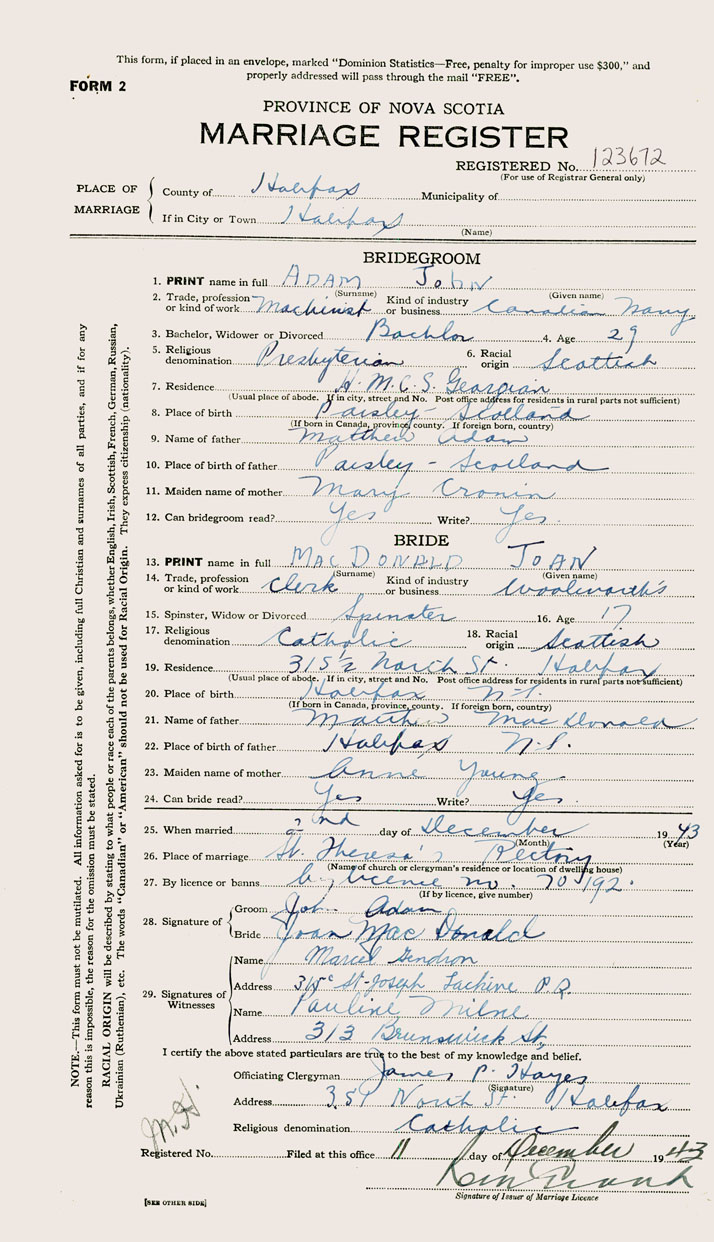 This form, if placed in an envelope, marked "Dominion Statistics—Free, penalty for improper use $300," and
properly addressed will pass through the mail "FREE".
FORM 2
PROVINCE OF NOVA SCOTIA
MARRIAGE REGISTER
REGISTERED No. 123672
(For use of Registrar General only)
PLACE OF MARRIAGE
County of Halifax Municipality of
If in City or Town Halifax
(Name)
BRIDEGROOM
1. PRINT name in full ADAM JOHN
(Surname) (Given name)
2. Trade, profession or kind of work Machinist Kind of industry or business Canadian Navy
3. Bachelor, Widower or Divorced Bachlor 4. Age 29
5. Religious denomination Presbyterian 6. Racial origin Scottish
7. Residence H.M.C.S. Georgian
(Usual place of abode. If in city, street and No. Post office address for residents in rural parts not sufficient)
8. Place of birth Paisley - Scotland
(If born in Canada, province, county. If foreign born, country)
9. Name of father Matthew Adam
10. Place of birth of father Paisley - Scotland
11. Maiden name of mother Mary Cronin
12. Can bridegroom read? Yes Write? Yes.
BRIDE
13. PRINT name in full MAC DONALD JOAN
(Surname) (Given name)
14. Trade, profession or kind of work Clerk Kind of industry or business Woolworth's
15. Spinster, Widow or Divorced Spinster 16. Age 17
17. Religious denomination Catholic 18. Racial origin Scottish
19. Residence 315½ North St. Halifax
(Usual place of abode. If in city, street and No. Post office address for residents in rural parts not sufficient)
20. Place of birth Halifax N.S.
(If born in Canada, province, county. If foreign born, country)
21. Name of father Mac Donald
22. Place of birth of father Halifax N.S.
23. Maiden name of mother Anne Young
24. Can bride read? Yes Write? Yes.
25. When married 2nd day of December 1943
(Month) (Year)
26. Place of marriage St. Theresa's Rectory
(Name of church or clergyman's residence or location of dwelling house)
27. By licence or banns by licence no. 705192.
(If by licence, give number)
28. Signature of
Groom John Adam
Bride Joan Mac Donald
29. Signatures of Witnesses
Name Marcel Gendron
Address St-Joseph Lachine P.Q.
Name Pauline Milne
Address 313 Brunswick St,
I certify the above stated particulars are true to the best of my knowledge and belief.
Officiating Clergyman James P. Hayes
(Signature)
Address 359 North St. Halifax
Religious denomination Catholic
Registered No. Filed at this office 11 day of December 1943
Signature of Issuer of Marriage Licence
[SEE OTHER SIDE]
NOTE.—This form must not be mutilated. All information asked for is to be given, including full Christian and surnames of all parties, and if for any
reason this is impossible, the reason for the omission must be stated.
RACIAL ORIGIN will be described by stating to what people or race each of the parents belongs, whether English, Irish, Scottish, French, German, Russian,
Ukrainian (Ruthenian), etc. The words "Canadian" or "American" should not be used for Racial Origin. They express citizenship (nationality).